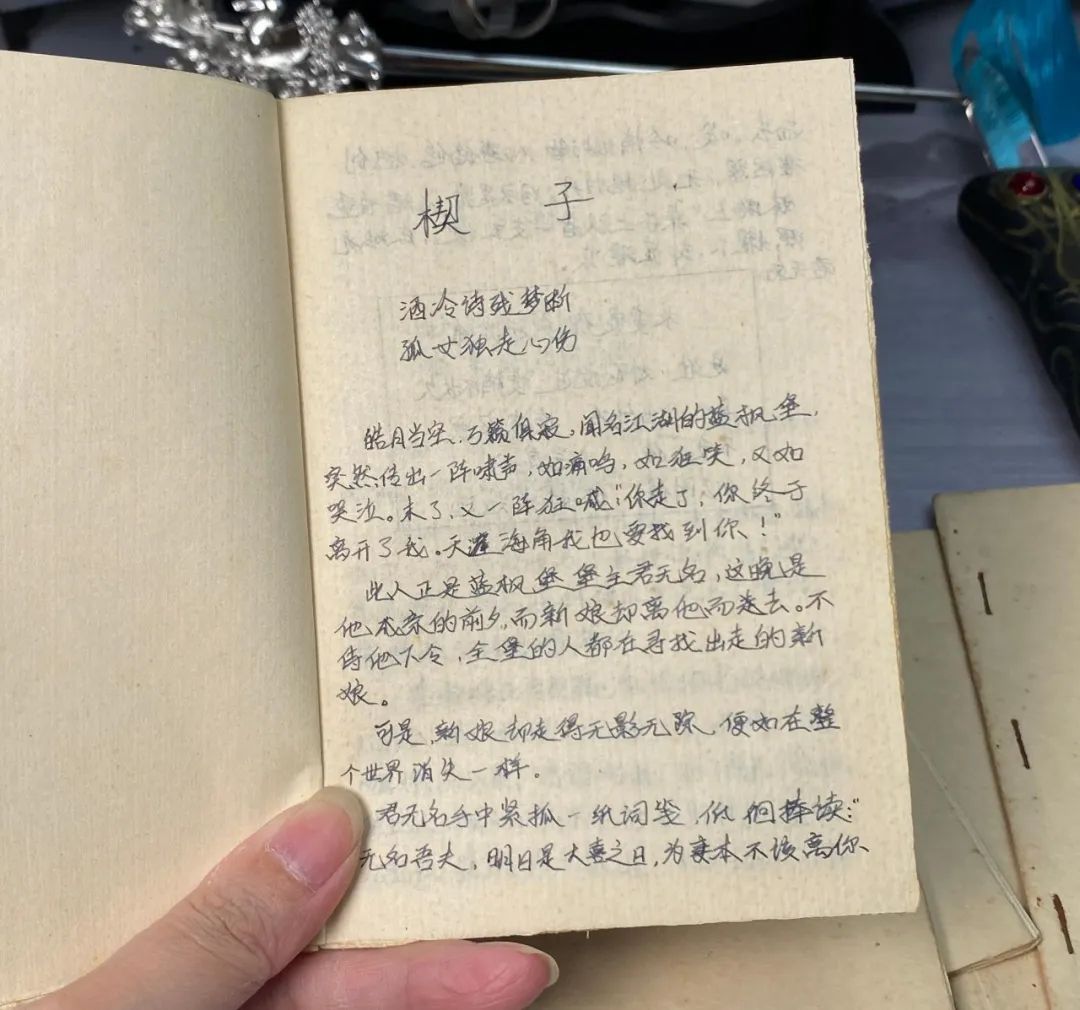 楔 子
酒冷诗残梦断
孤女独走心伤
皓月当空、万籁俱寂,闻名江湖的蓝枫堡,
突然传出一阵啸声,如痛鸣,如狂笑,又如
哭泣。末了,又一阵狂喊:“你走了;你终于
离开了我。天涯海角我也要找到你!”
此人正是蓝枫堡堡主君无名,这晚是
他成亲的前夕,而新娘却离他而去。不
待他下令,全堡的人都在寻找出走的新
娘。
可是,新娘却走得无影无踪,便如在整
个世界消失一样。
君无名手中紧抓一纸词笺,低徊捧读:“
无名吾夫,明日是大喜之日,为妻本不该离你